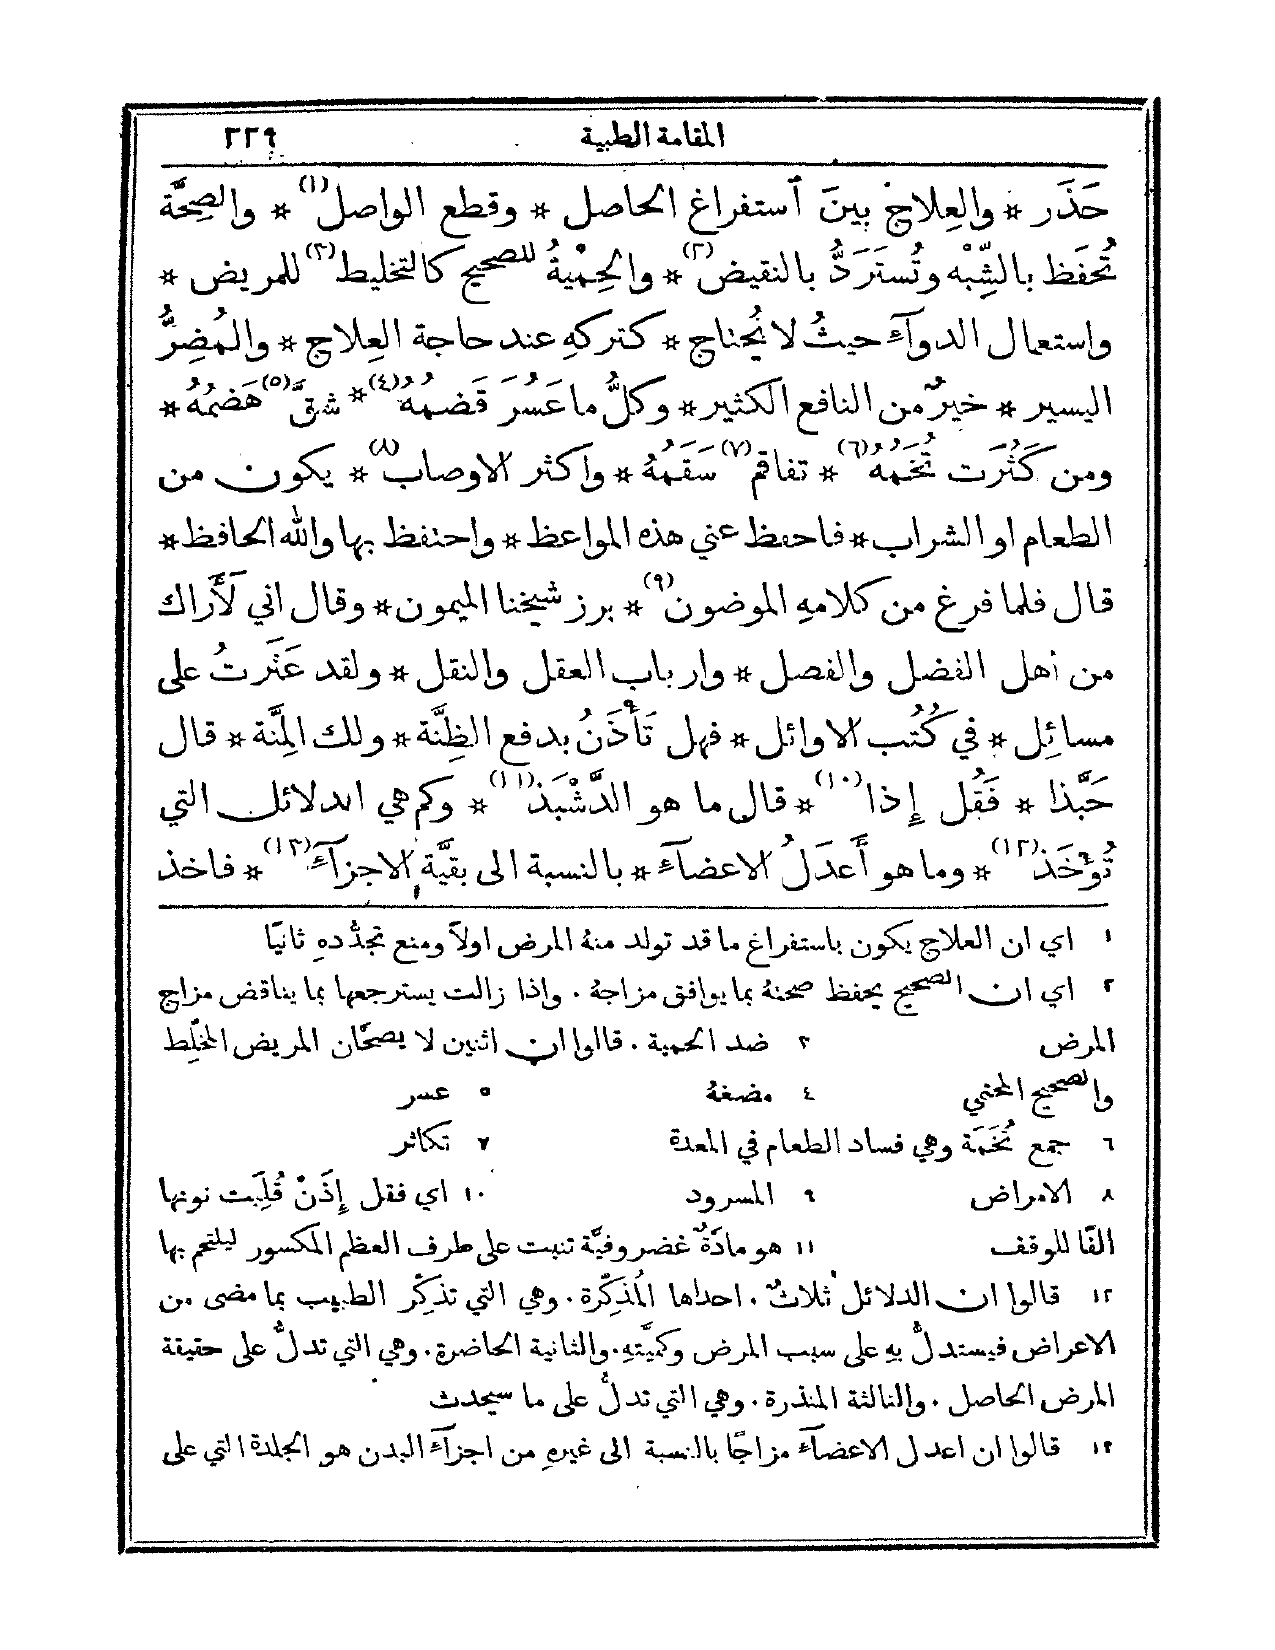 المقامة الطبية ٢٢٩
حَذَر * والعِلاجُ بينَ ٱستفراغ الحاصل * وقطع الواصل(١) * والصِحَّة
تُحفَظ بالشِّبْه وتُستَرَدُّ بالنقيض(٢) * والحِمْيةُ للصحيح كالتخليط(٣) للمريض *
واستعمال الدوآء حيثُ لا يُحتاج * كتركهِ عند حاجة العِلاج * والمُضِرُّ
اليسير * خيرٌ من النافع الكثير * وكلُّ ما عَسُرَ قَضمُهُ(٤) * شقَّ(٥) هَضمُهُ *
ومن كَثُرَت تُخَمُهُ(٦) * تفاقم(٧) سَقَمُهُ * واكثر الاوصاب(٨) * يكون من
الطعام او الشراب * فاحفظ عني هذه المواعظ * واحتفظ بها والله الحافظ *
قال فلما فرغ من كلامهِ الموضون(٩) * برز شيخنا الميمون * وقال اني لَأَراك
من أهل الفضل والفصل * وارباب العقل والنقل * ولقد عَثَرتُ على
مسائِل * في كُتُب الاوائل * فهل تَأْذَنُ بدفع الظِنَّة * ولك المِنَّة * قال
حَبَّذا * فَقُل إِذا(١٠) * قال ما هو الدَّشْبَذ(١١) * وكم هي الدلائل التي
تُؤْخَذ(١٢) * وما هو أَعدَلُ الاعضآء * بالنسبة الى بقيَّة الاجزآء(١٣) * فاخذ
١ اي ان العلاج يكون باستفراغ ما قد تولد منهُ المرض اولاً ومنع تجدُّدهِ ثانيًا
٢ اي ان الصحيح يحفظ صحتهُ بما يوافق مزاجهُ . واذا زالت يسترجعها بما يناقض مزاج
المرض ٣ ضد الحمية . قالوا ان اثنين لا يصحَّان المريض المخلِّط
والصحيح المحتمي ٤ مضغهُ ٥ عسر
٦ جمع تُخَمَة وهي فساد الطعام في المعدة ٧ تكاثر
٨ الامراض ٩ المسرود ١٠ اي فقل إِذَنْ قُلِبَت نونها
الفًا للوقف ١١ هو مادَّةٌ غضروفيَّة تنبت على طرف العظم المكسور ليلتحم بها
١٢ قالوا ان الدلائل ثلاثٌ . احداها المُذكِّرة . وهي التي تذكِّر الطبيب بما مضى من
الاعراض فيستدلُّ بهِ على سبب المرض وكميَّتهِ . والثانية الحاضرة . وهي التي تدلُّ على حقيقة
المرض الحاصل . والثالثة المنذرة . وهي التي تدلُّ على ما سيحدث
١٣ قالوا ان اعدل الاعضآء مزاجًا بالنسبة الى غيرهِ من اجزآء البدن هو الجلدة التي على